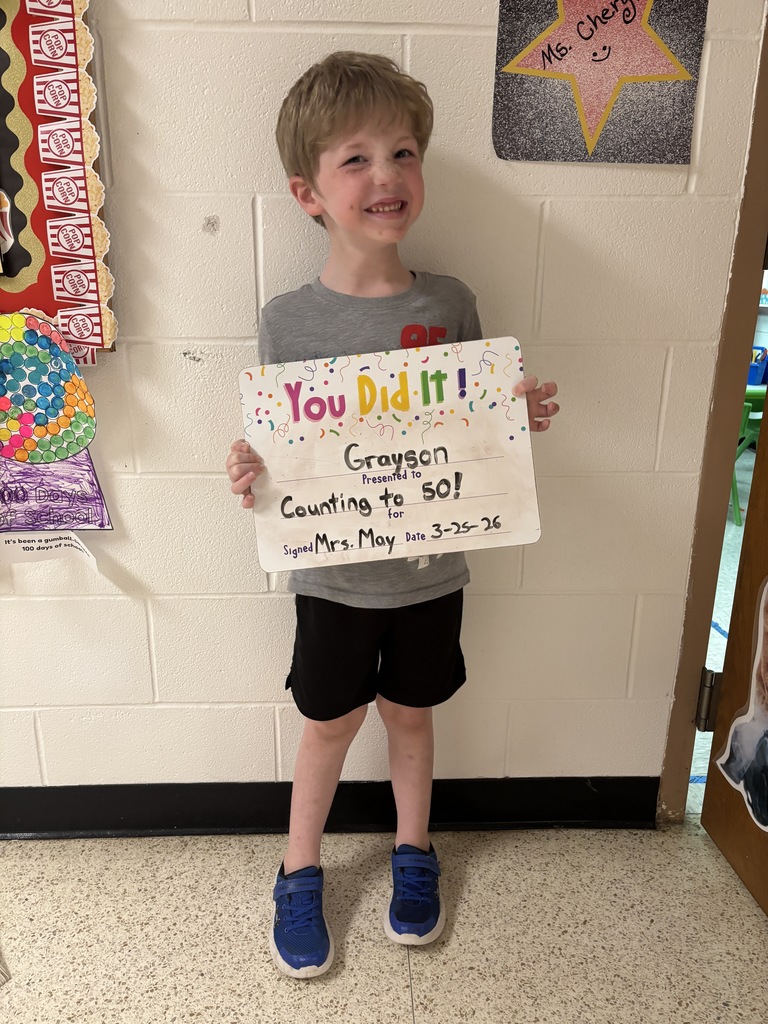 POP CORN
POP CORN
POP CORN
POP CORN
POP CORN
POP CORN
Ms. Chery
You Did It!
Grayson
Presented to
Counting to 50!
for
Signed Mrs. May Date 3-25-26
00 Days
of School!
It's been a gumball
100 days of